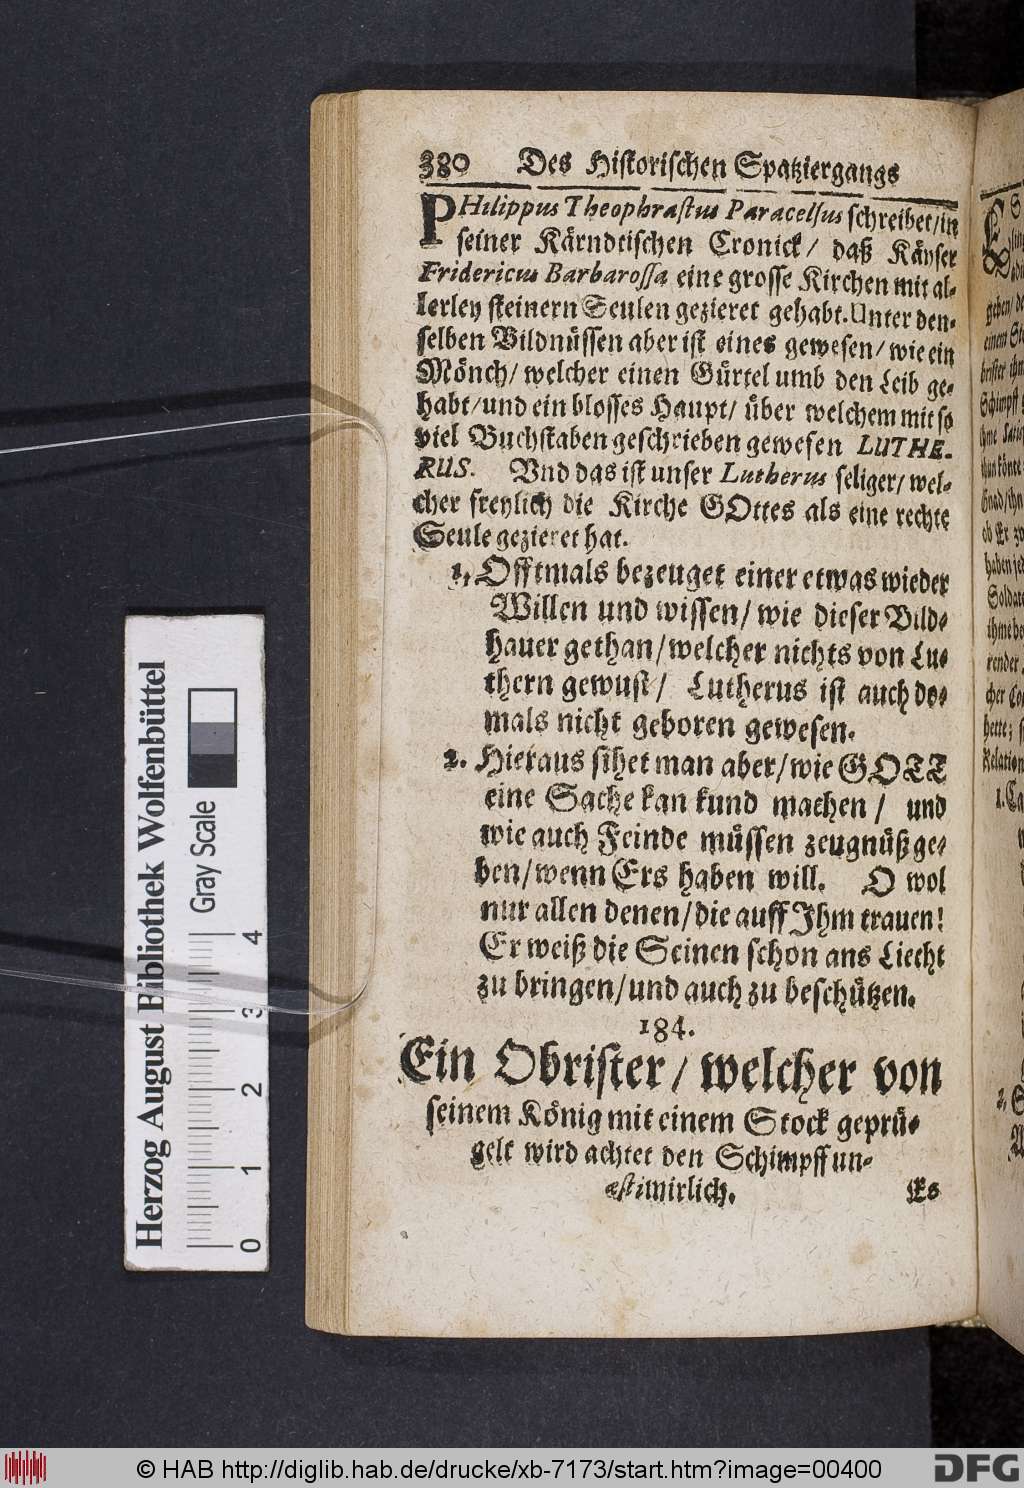 380 Des Historischen Spatziergangs
PHilippus Theophrastus Paracelsus schreibet/in
seiner Kärndtischen Cronick/ daß Käyser
Fridericus Barbarossa eine grosse Kirchen mit al-
lerley steinern Seulen gezieret gehabt. Unter den-
selben Bildnüssen aber ist eines gewesen/ wie ein
Mönch/ welcher einen Gürtel umb den Leib ge-
habt/und ein blosses Haupt/ über welchem mit so
viel Buchstaben geschrieben gewesen LUTHE-
RUS. Vnd das ist unser Lutherus seliger/ wel-
cher freylich die Kirche GOttes als eine rechte
Seule gezieret hat.
1. Offtmals bezeuget einer etwas wieder
Willen und wissen/ wie dieser Bild-
hauer gethan/welcher nichts von Lu-
thern gewust/ Lutherus ist auch da-
mals nicht geboren gewesen.
2. Hieraus sihet man aber/wie GOTT
eine Sache kan kund machen/ und
wie auch Feinde müssen zeugnüß ge-
ben/wenn Ers haben will. O wol
nur allen denen/die auff Ihm trauen!
Er weiß die Seinen schon ans Liecht
zu bringen/und auch zu beschützen.
184.
Ein Obrister/ welcher von
seinem König mit einem Stock geprü-
gelt wird achtet den Schimpff un-
æstimirlich. Es
Herzog August Bibliothek Wolfenbüttel
Gray Scale
0 1 2 3 4
© HAB http://diglib.hab.de/drucke/xb-7173/start.htm?image=00400
DFG